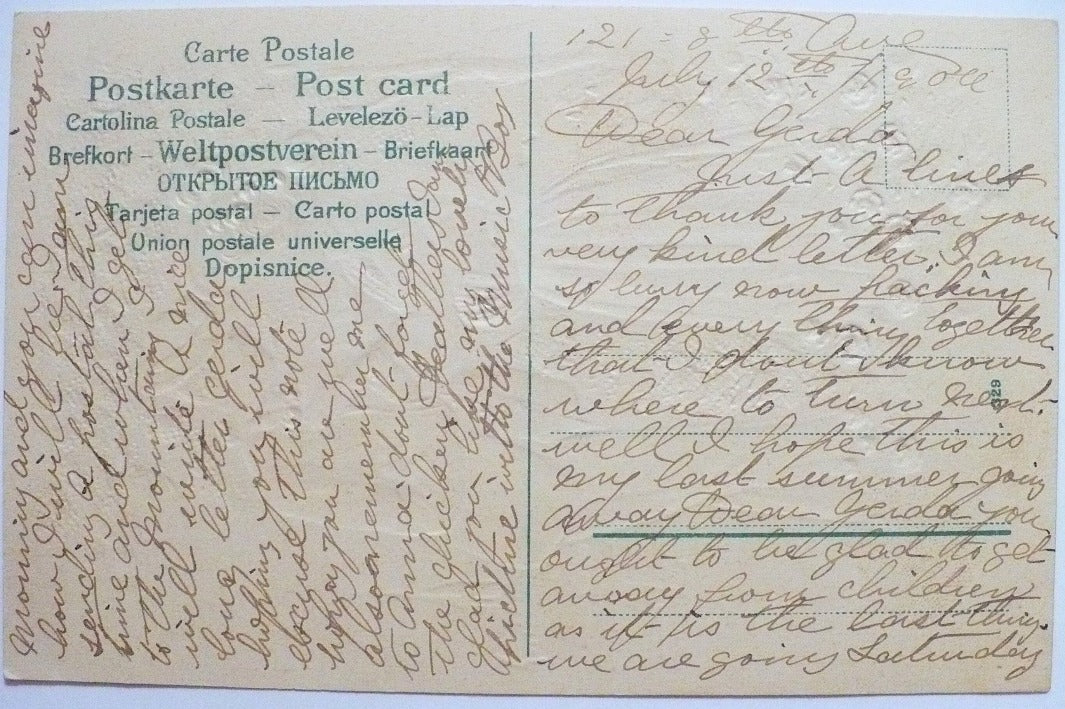 Carte Postale
Postkarte – Post card
Cartolina Postale – Levelező-Lap
Brefkort – Weltpostverein – Briefkaart
ОТКРЫТОЕ ПИСЬМО
Tarjeta postal – Carto postal
Union postale universelle
Dopisnice.
329
121 - 8 th Ave
July 12 th
Dear Gerda
Just A lines
to thank you for your
very kind letter. I am
so bury now packing
and every thing together
that I dont know
where to turn next.
well I hope this is
my last summer going
away Dear Gerda you
ought to be glad to get
away from children
as it is the last thing.
we are going Saturday
morning and you can imagine
how I will feel. I am
sending A postal this
time and when I get
to the mountains I
will write A nice
long letter Gerda
hoping you will
excuse this note
hoping you are well
also remember me
to Anna dont forget
the chicken feathers I am
glad you like my lovely
picture with the Music Box